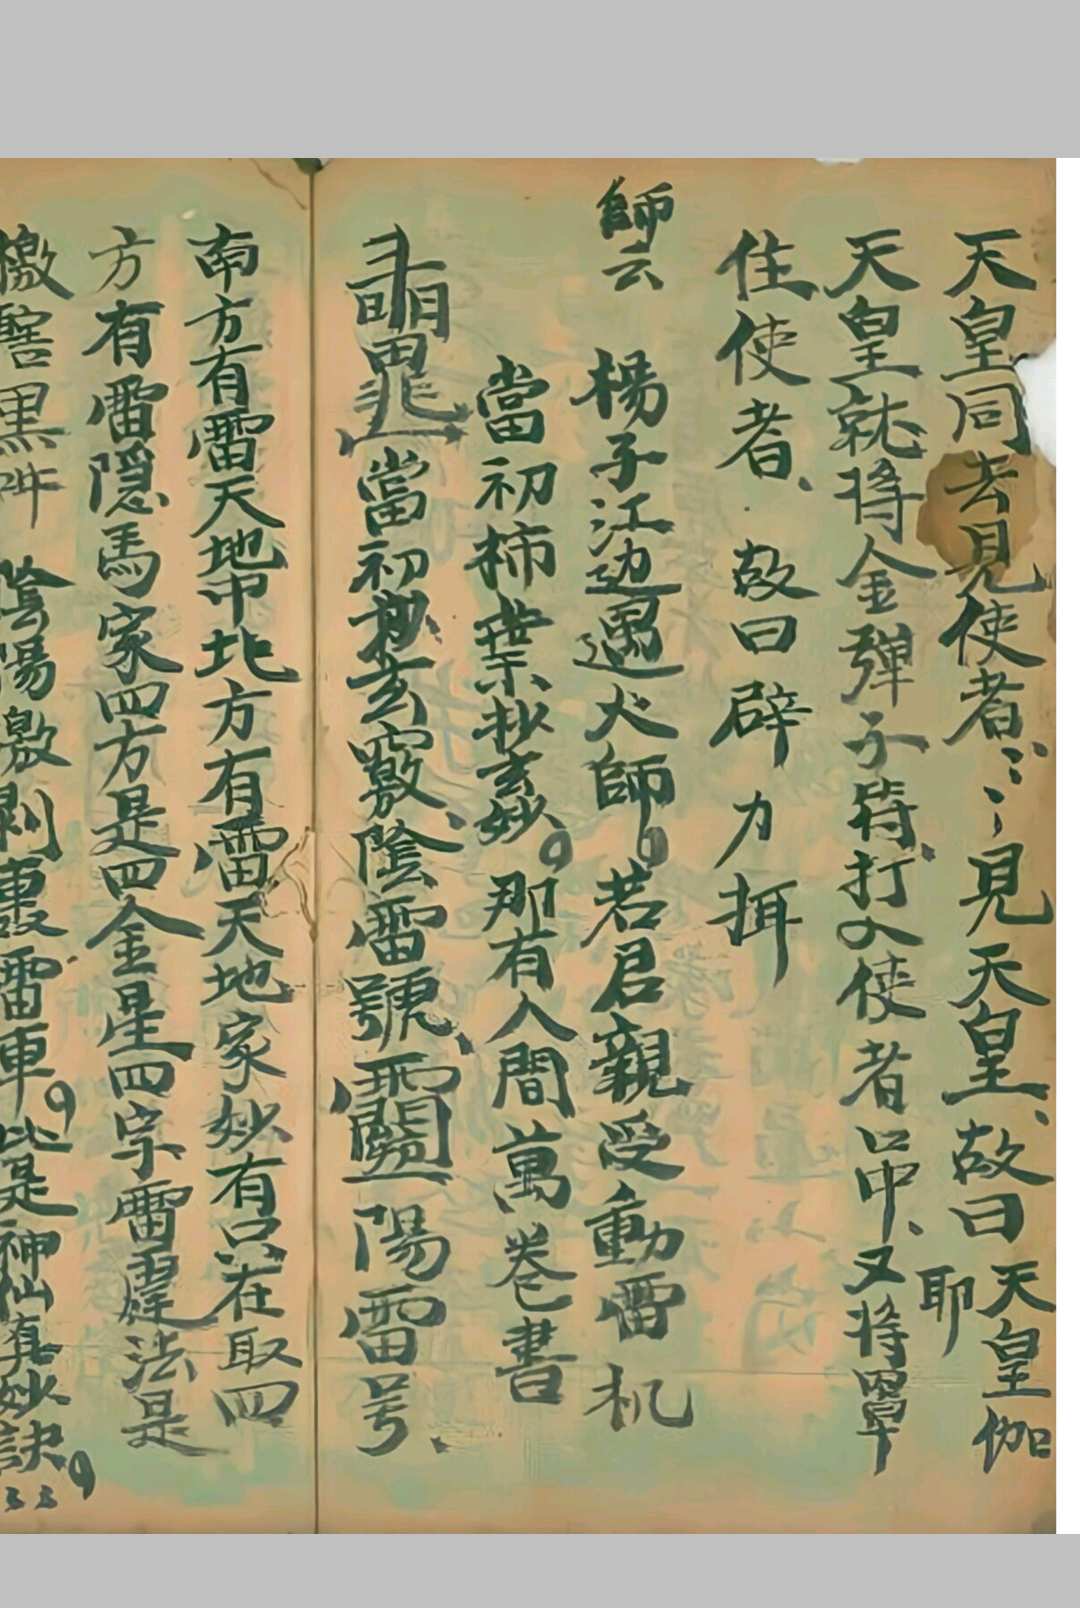 天皇同去見使者〻〻見天皇故曰天皇伽耶
天皇就将金彈子待打入使者口中又将罩
住使者故曰辟力揖
師云
楊子江边遇火師若君親受動雷机
當初柿葉抄玄妙那有人間萬卷書
當初抄玄竅陰雷號陽雷号
南方有雷天地中北方有雷天地家妙有只在取四
方有雷隠馬家四方是四金星四字雷霆法是
檄黑吽陰陽激剝雷車此是神仙真妙訣